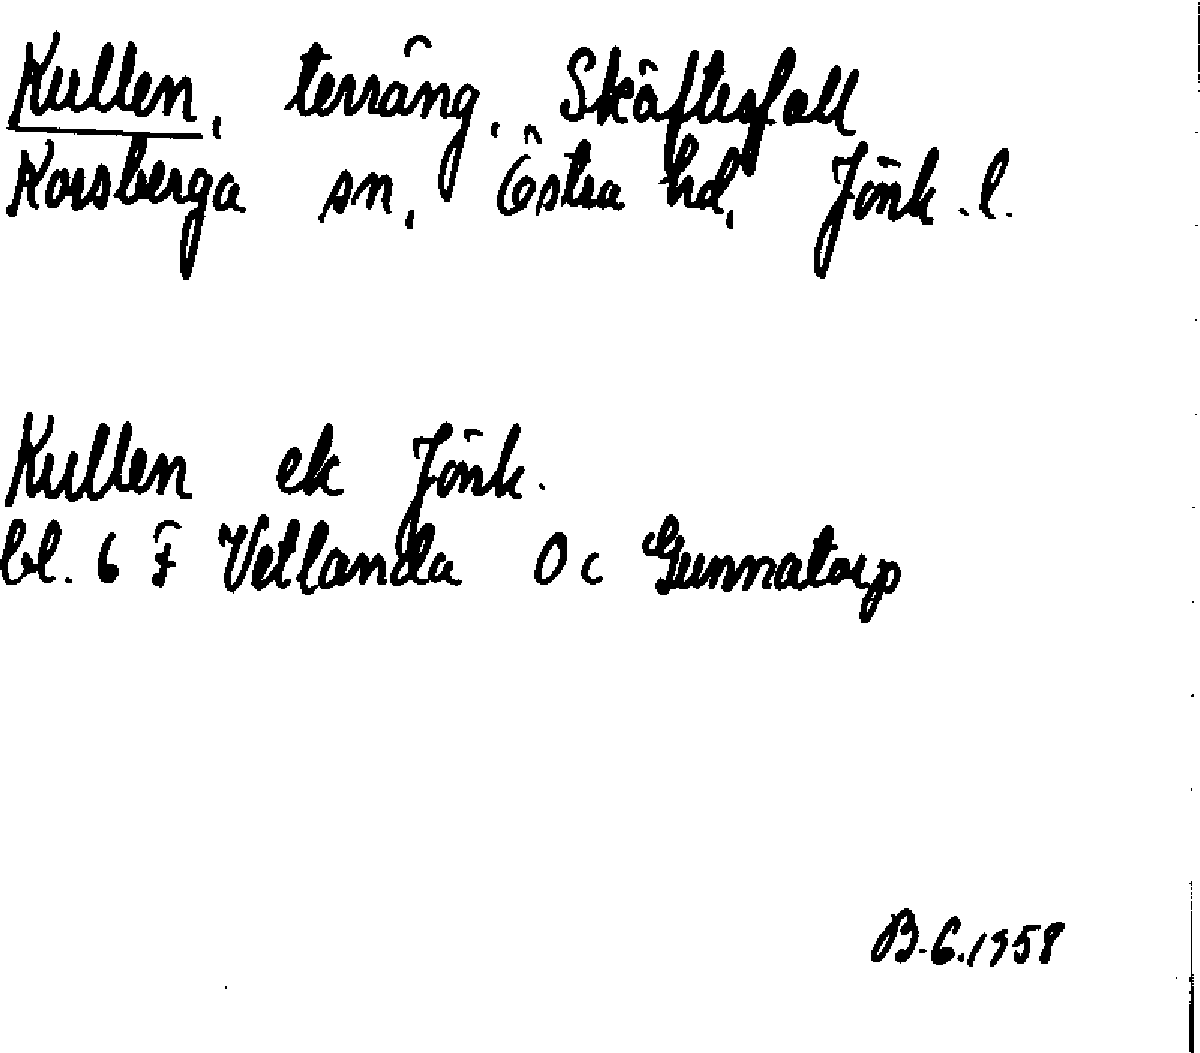 Kullen, terräng, Skäftesfall
Korsberga sn, Östra hd, Jönk. l.
Kullen ek Jönk.
bl. 6 F Vetlanda 0 c Gunnatorp
B-G. 1958